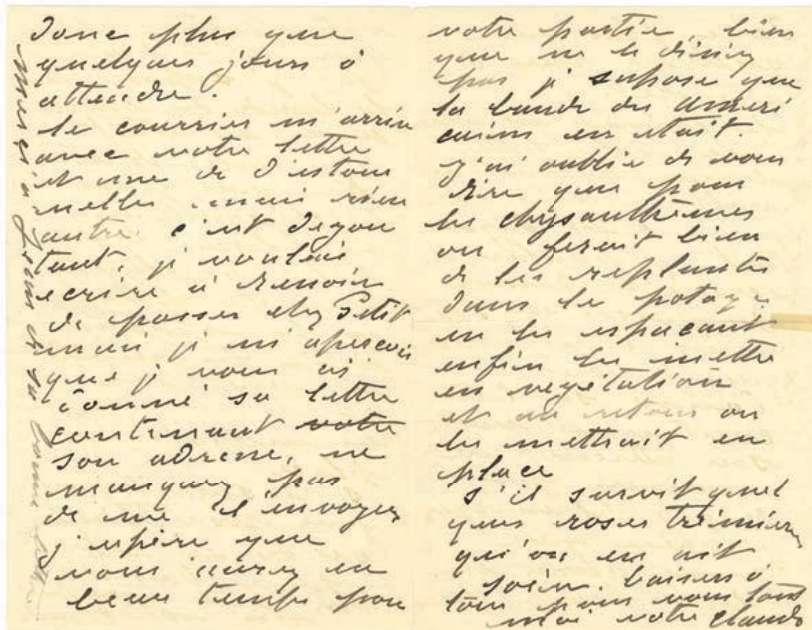 donc plus que
quelques jours à
attendre.
le courrier m'arrive
avec votre lettre
et une de d'estour
nelles mais rien
autre. c'est degou
tant, je voulais
ecrire à Renoir
de passer chez Petit
mais je m'aperçois
que je vous ai
donné sa lettre
contenant votre
son adresse, ne
manquez pas
de me l'envoyer
j'espère que
vous aurez eu
beau temps pour
Merci à
votre partie, bien
que ne le disiez
pas je supose que
la bande des ameri
cains en était.
j'ai oublié de vous
dire que pour
les chrysanthèmes
on ferait bien
de les replanter
dans le potager
en les espaçant
enfin les mettre
en végétation
et au retour on
les mettrait en
place
s'il survit quel
ques roses trémières
qu'on en ait
soin. baisers à
tous pour vous tous
moi votre claude